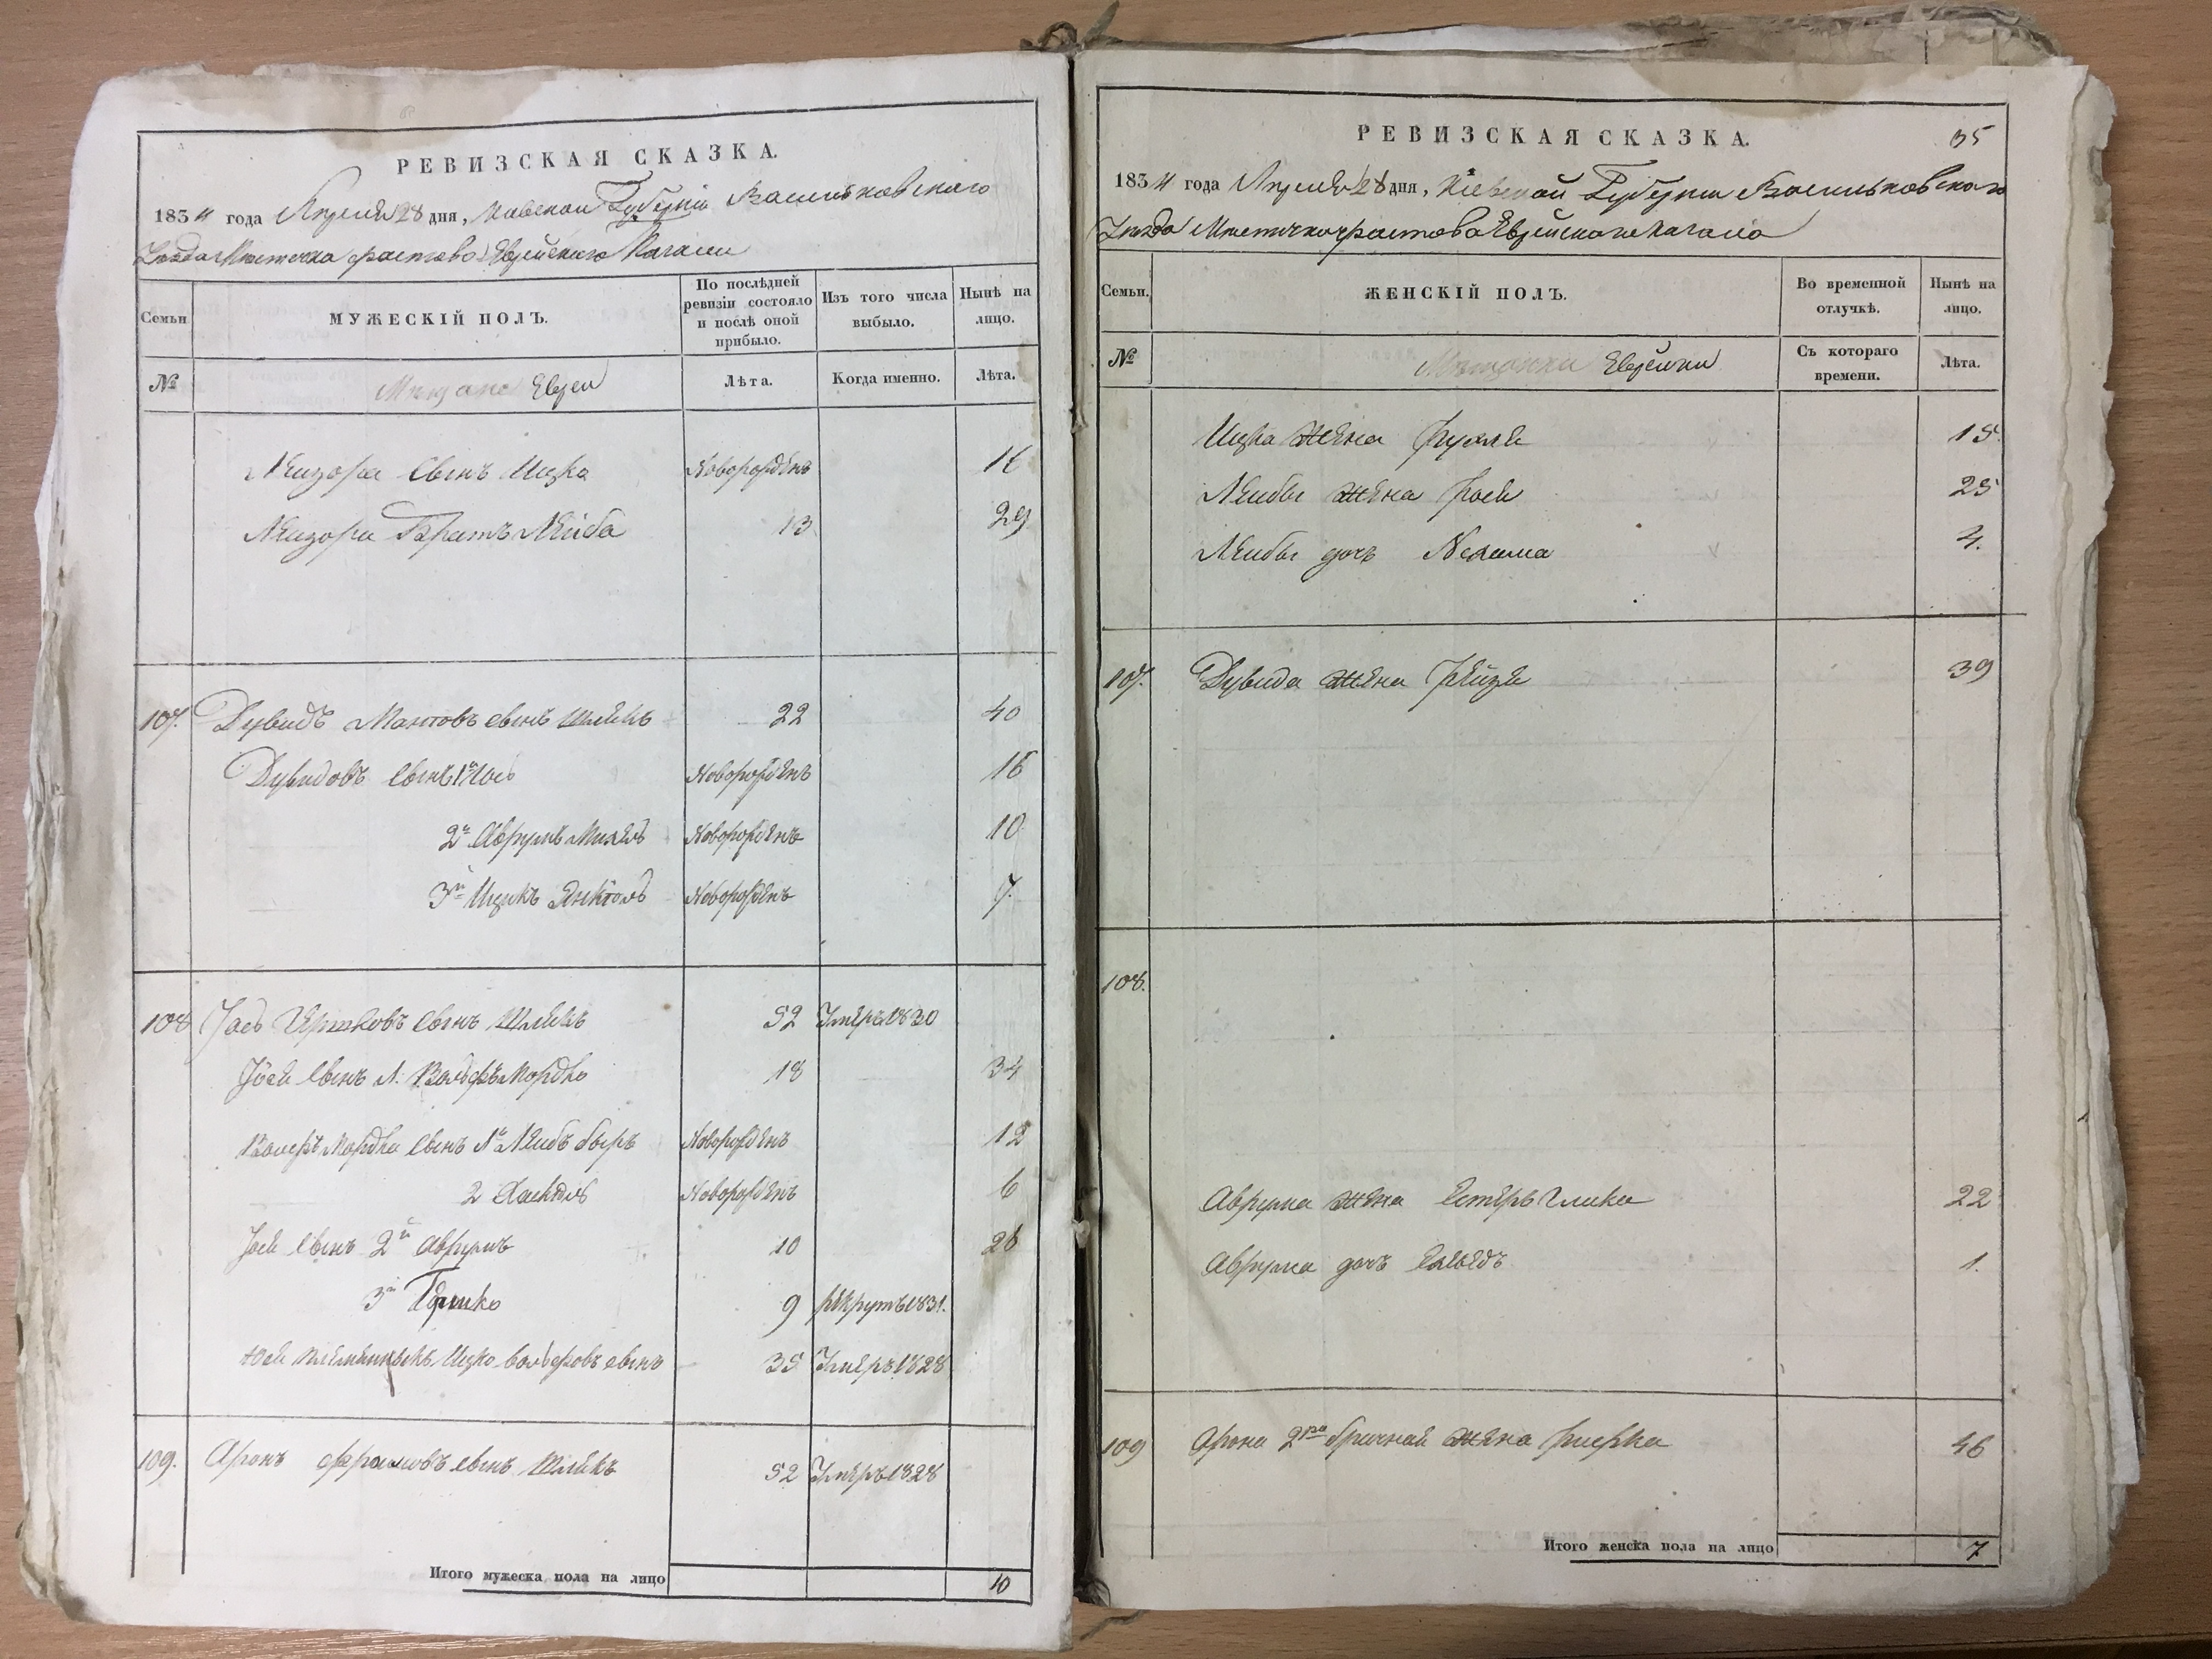 РЕВИЗСКАЯ СКАЗКА.
1834 года Апреля 28 дня, Киевской Губернiи Васильковского
Уезда Местечка Фастова Еврейского Кагала
Семьи
МУЖЕСКIЙ ПОЛЪ.
По послѣдней ревизiи состояло и послѣ оной прибыло.
Изъ того числа выбыло.
Нынѣ на лицо.
№
Мещане Евреи
Лѣта.
Когда именно.
Лѣта.
Лейзора сынъ Ицко Новорожденъ 16
Лейзора Братъ Лейба 13 29
107. Дувидъ сынъ Шлёмъ 22 40
Дувидовъ сынъ 1й Иось Новорожденъ 16
2й Аврумъ Михель Новорожденъ 10
3й Ицикъ Янкель Новорожденъ 7.
108 Iось Гершковъ сынъ 52 Умеръ 1830
Iося сынъ 1. Вольфъ Мордко 18 34
Вольфъ Мордка сынъ 1й Лейбъ Беръ Новорожденъ 12
2 Хаскель Новорожденъ 6
Iося сынъ 2й Аврумъ 10 26
3й 9 рекрутъ 1831.
Юся племянникъ Ицко Вольфовъ сынъ 35 Умеръ 1828
109. Аронъ сынъ 52 Умеръ 1828
Итого мужеска пола на лицо 10
РЕВИЗСКАЯ СКАЗКА.
35
1834 года Апреля 28 дня, Кiевской Губернiи Васильковского
Уезда Местечка Фастова Еврейскаго Кагала
Семьи.
ЖЕНСКIЙ ПОЛЪ.
Во временной отлучкѣ.
Нынѣ на лицо.
№
Мещанки Еврейки
Съ котораго времени.
Лѣта.
Ицка жена Рухля 15.
Лейбы жена Рося 25
Лейбы дочь Нехама 4.
107. Дувида жена Рейзя 39
108.
Аврума жена Естеръ Глика 22
Аврума дочь 1.
109 Арона 2ро брачная жена Ривка 46
Итого женска пола на лицо 7